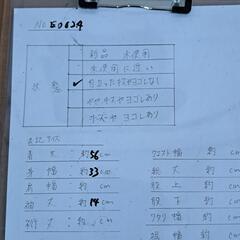 No E0624
状態
新品 未使用
未使用に近い
✓ 目立ったキズやヨゴレなし
ややキズやヨゴレあり
キズーヤ ヨゴレあり
表記サイズ
着丈:約56cm ウエスト幅 約
身幅:約33cm 総丈:約
肩幅:約 cm 股上:約
袖丈:約14cm 股下:約
裄丈:約 cm ワタリ幅:約
裾幅:約